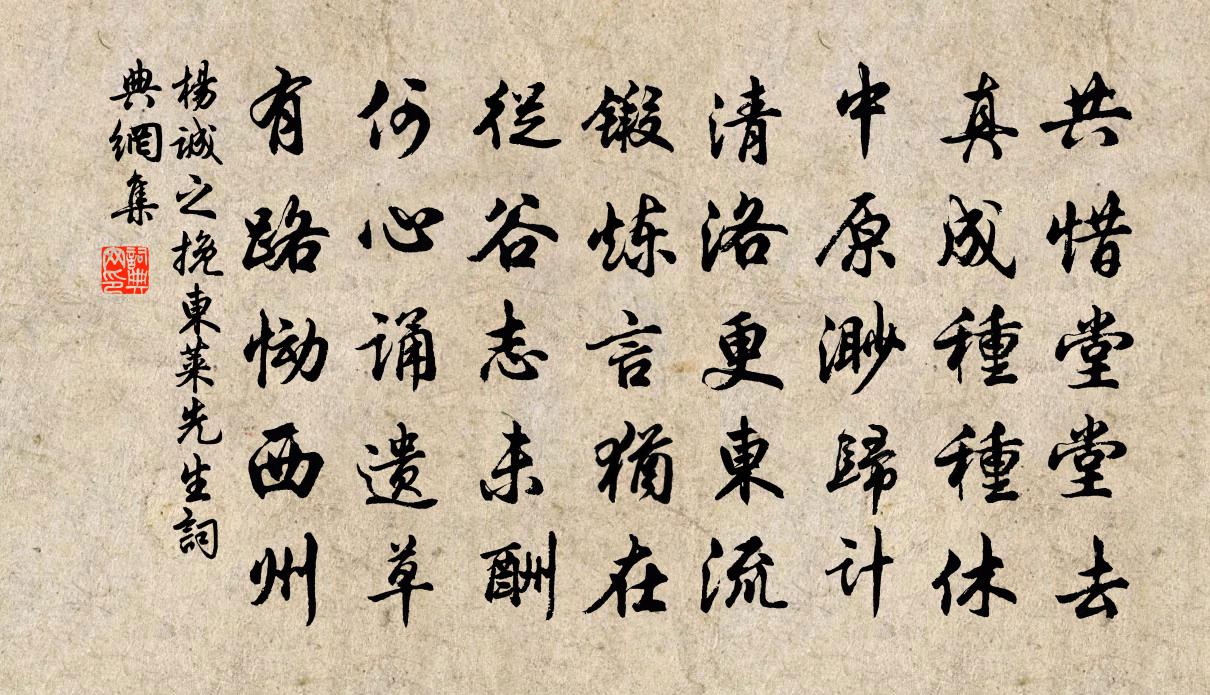 共惜堂堂去
真成種種休
中原渺歸计
清洛更東流
鍛炼言猶在
從谷志未酬
何心诵遗草
有路恸西州
楊誠之挽東萊先生詞
典網集
詞典
网印